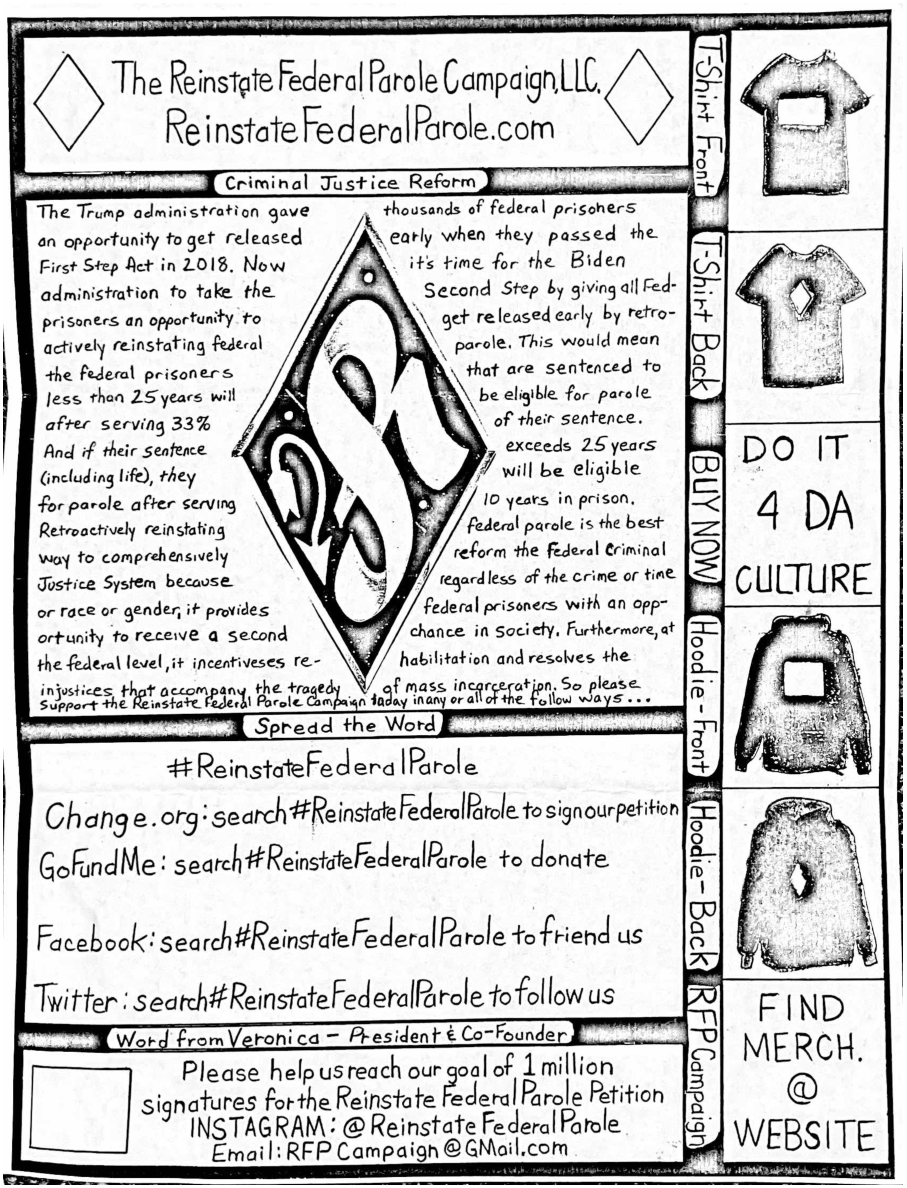 The Reinstate Federal Parole Campaign, LLC.
ReinstateFederalParole.com
Criminal Justice Reform
The Trump administration gave thousands of federal prisoners
an opportunity to get released early when they passed the
First Step Act in 2018. Now it's time for the Biden
administration to take the Second Step by giving all Fed-
prisoners an opportunity to get released early by retro-
actively reinstating federal parole. This would mean
the federal prisoners that are sentenced to
less than 25 years will be eligible for parole
after serving 33% of their sentence.
And if their sentence exceeds 25 years
(including life), they will be eligible
for parole after serving 10 years in prison.
Retroactively reinstating federal parole is the best
way to comprehensively reform the Federal Criminal
Justice System because regardless of the crime or time
or race or gender, it provides federal prisoners with an opp-
ortunity to receive a second chance in society. Furthermore, at
the federal level, it incentiveses re- habilitation and resolves the
injustices that accompany the tragedy of mass incarceration. So please
support the Reinstate Federal Parole Campaign today in any or all of the follow ways...
Spread the Word
#ReinstateFederalParole
Change.org: search #ReinstateFederalParole to sign our petition
GoFundMe: search #ReinstateFederalParole to donate
Facebook: search #ReinstateFederalParole to friend us
Twitter: search #ReinstateFederalParole to follow us
Word from Veronica - President & Co-Founder
Please help us reach our goal of 1 million
signatures for the Reinstate Federal Parole Petition
INSTAGRAM: @ReinstateFederalParole
Email: RFPCampaign@GMail.com
T-Shirt Front
T-Shirt Back
BUY NOW
DO IT
4 DA
CULTURE
Hoodie-Front
Hoodie-Back
RFP Campaign
FIND
MERCH.
@
WEBSITE